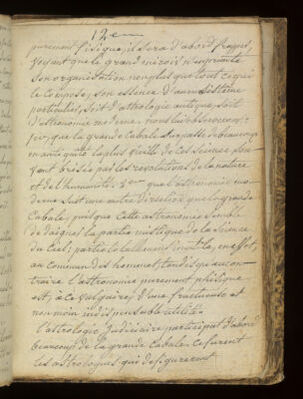 12e
purement fisique, il sera d'abord frappé,
voyant que le grand miroir n'emprunte
son organisation non plus que tout ce qui
le compose, son essence d'aucun sistême
particulier, soit d'astrologie antique, soit
d'astronomie moderne. Nous lui observerons
que la grande Cabale surpasse de beaucoup
en antiquité la plus vieille de ces siences
par les revolutions de la nature
et de l'humanité. 2° que l'astronomie mo-
derne suit une autre direction que la grande
Cabale, puisque cette astronomie semble
dedaigner la partie mistique de la sience
du Ciel; partie totallement inutile, en effet,
au commun des hommes, tandis qu'au con-
traire l'astronomie purement phisique
est, à ce vulgaire, d'une fructueuse et
non moins indispensable utilité.
l'astrologie judiciaire participait d'abord
beaucoup de la grande Cabale. Ce furent
les astrologues qui defigurerent